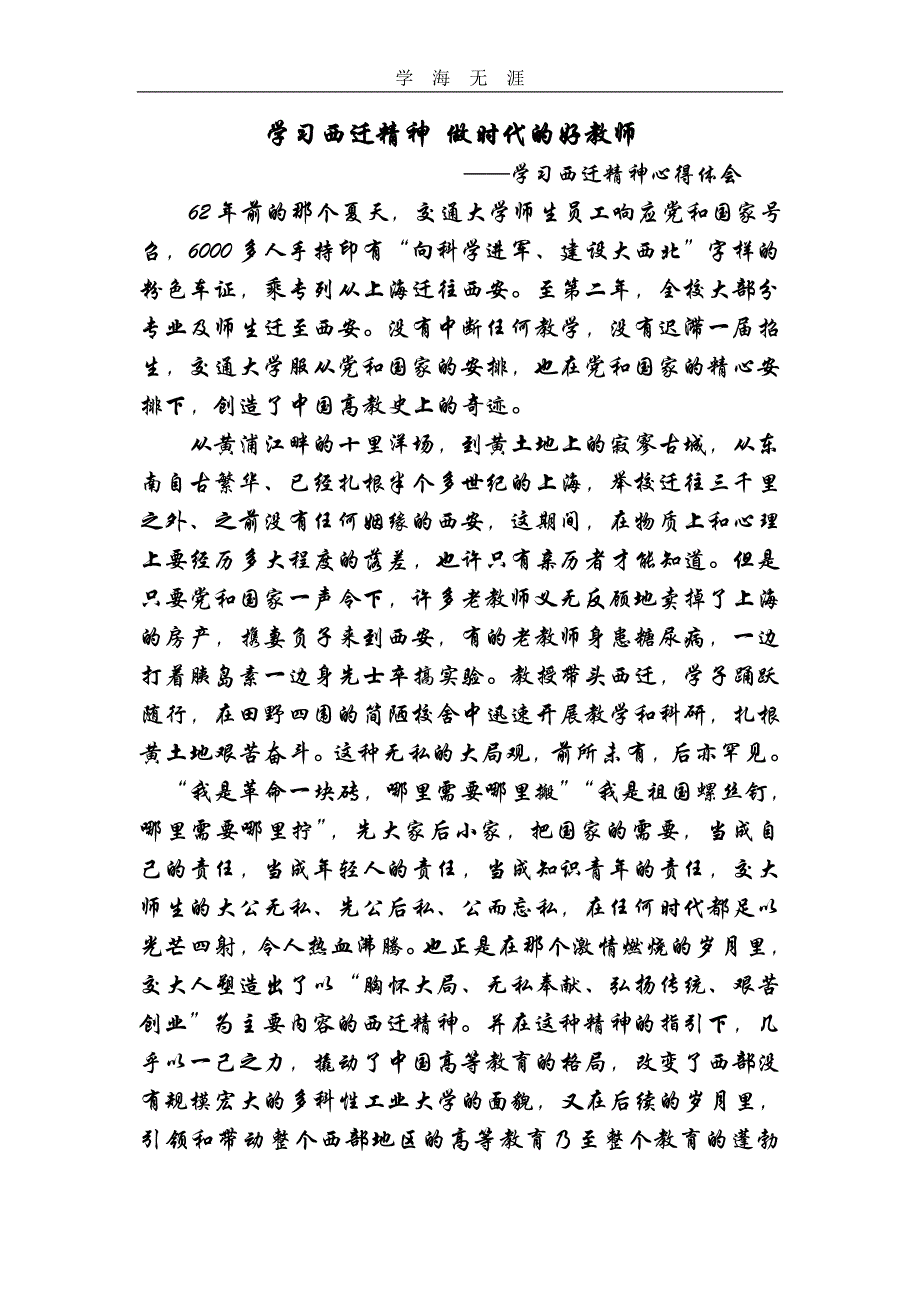 学 海 无 涯
学习西迁精神 做时代的好教师
——学习西迁精神心得体会
62年前的那个夏天，交通大学师生员工响应党和国家号
召，6000多人手持印有“向科学进军、建设大西北”字样的
粉色车证，乘专列从上海迁往西安。至第二年，全校大部分
专业及师生迁至西安。没有中断任何教学，没有迟滞一届招
生，交通大学服从党和国家的安排，也在党和国家的精心安
排下，创造了中国高教史上的奇迹。
从黄浦江畔的十里洋场，到黄土地上的寂寥古城，从东
南自古繁华、已经扎根半个多世纪的上海，举校迁往三千里
之外、之前没有任何姻缘的西安，这期间，在物质上和心理
上要经历多大程度的落差，也许只有亲历者才能知道。但是
只要党和国家一声令下，许多老教师义无反顾地卖掉了上海
的房产，携妻负子来到西安，有的老教师身患糖尿病，一边
打着胰岛素一边身先士卒搞实验。教授带头西迁，学子踊跃
随行，在田野四围的简陋校舍中迅速开展教学和科研，扎根
黄土地艰苦奋斗。这种无私的大局观，前所未有，后亦罕见。
“我是革命一块砖，哪里需要哪里搬”“我是祖国螺丝钉，
哪里需要哪里拧”，先大家后小家，把国家的需要，当成自
己的责任，当成年轻人的责任，当成知识青年的责任，交大
师生的大公无私、先公后私、公而忘私，在任何时代都足以
光芒四射，令人热血沸腾。也正是在那个激情燃烧的岁月里，
交大人塑造出了以“胸怀大局、无私奉献、弘扬传统、艰苦
创业”为主要内容的西迁精神。并在这种精神的指引下，几
乎以一己之力，撬动了中国高等教育的格局，改变了西部没
有规模宏大的多科性工业大学的面貌，又在后续的岁月里，
引领和带动整个西部地区的高等教育乃至整个教育的蓬勃